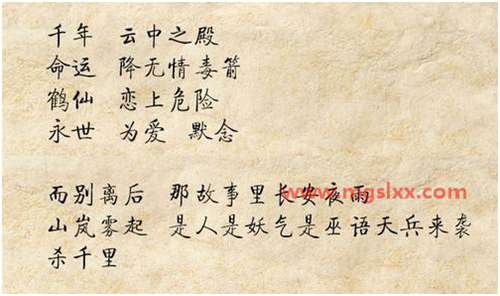 千年 云中之殿
命运 降无情毒箭
鹤仙 恋上危险
永世 为爱 默念
而别离后 那故事里长安夜雨
www.mgslxx.com
山岚雾起 是人是妖气是巫语天兵来袭
杀千里